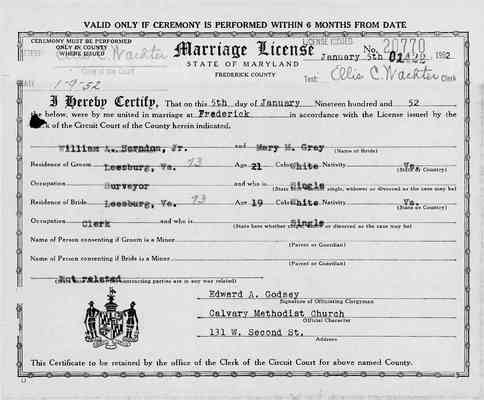 VALID ONLY IF CEREMONY IS PERFORMED WITHIN 6 MONTHS FROM DATE
CEREMONY MUST BE PERFORMED
ONLY IN COUNTY
WHERE ISSUED
Ellis C. Wachter
Clerk of the Court
DATE 1-9-52
Marriage License
STATE OF MARYLAND
FREDERICK COUNTY
LICENSE ISSUED
No. 20770
January 5th 1952
Test: Ellis C. Wachter Clerk
I Hereby Certify, That on this 5th day of January Nineteen hundred and 52
the below, were by me united in marriage at Frederick in accordance with the License issued by the
Clerk of the Circuit Court of the County herein indicated.
William A. Herndon, Jr. and Mary M. Grey
(Name of Bride)
Residence of Groom Leesburg, Va. 73 Age 21 Color White Nativity Va.
(State or Country)
Occupation Surveyor and who is Single
(State here whether single, widower or divorced as the case may be)
Residence of Bride Leesburg, Va. 73 Age 19 Color White Nativity Va.
(State or Country)
Occupation Clerk and who is Single
(State here whether or divorced as the case may be)
Name of Person consenting if Groom is a Minor
(Parent or Guardian)
Name of Person consenting if Bride is a Minor
(Parent or Guardian)
Not related
contracting parties are in any way related)
Edward A. Godsey
Signature of Officiating Clergyman
Calvary Methodist Church
Official Character
131 W. Second St.
Address
This Certificate to be retained by the office of the Clerk of the Circuit Court for above named County.